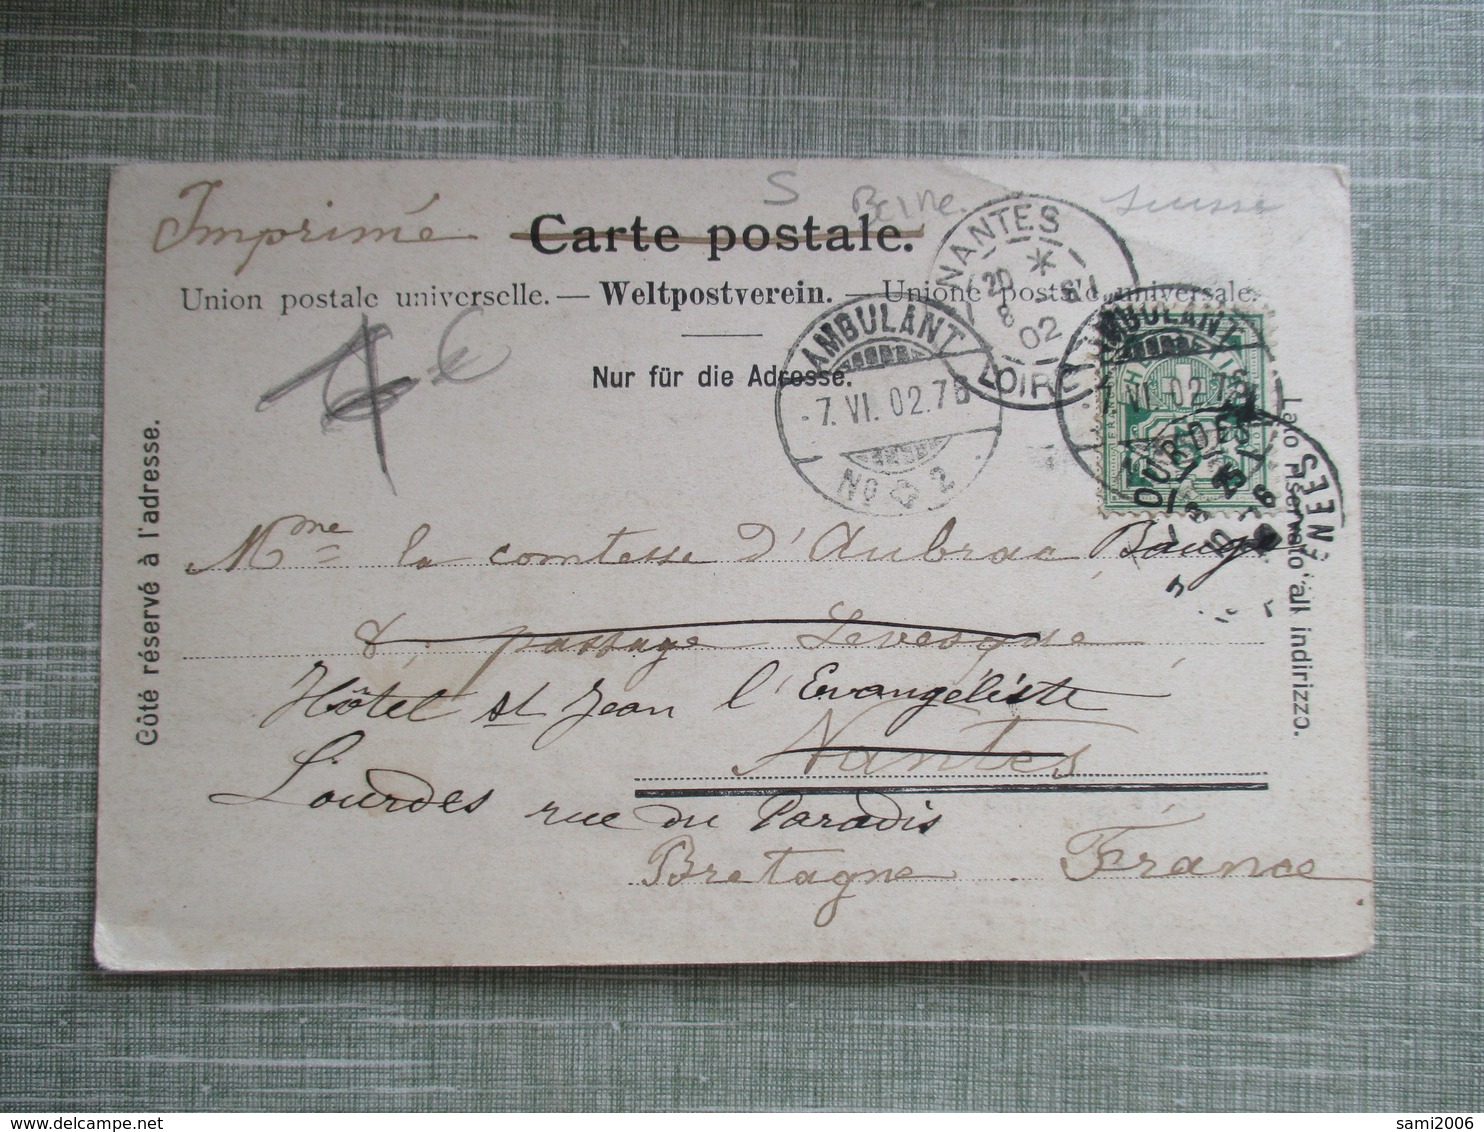 Imprimé Carte postale. S Berne. Suisse
Union postale universelle. — Weltpostverein. — Unione postale universale.
Nur für die Adresse.
Côté réservé à l'adresse.
Lato riservato all indirizzo.
NANTES
20 8 - 6 02
LOIRE
AMBULANT
-7. VI. 02. 7B
No 2
AMBULANT
-7. VI. 02. 7B
LOURDES
Mme la comtesse d'Aubrac
8, passage Levesque
Hôtel St Jean l'Evangéliste
Nantes
Lourdes rue du Paradis
Bretagne France
delcampe.net
sami2006